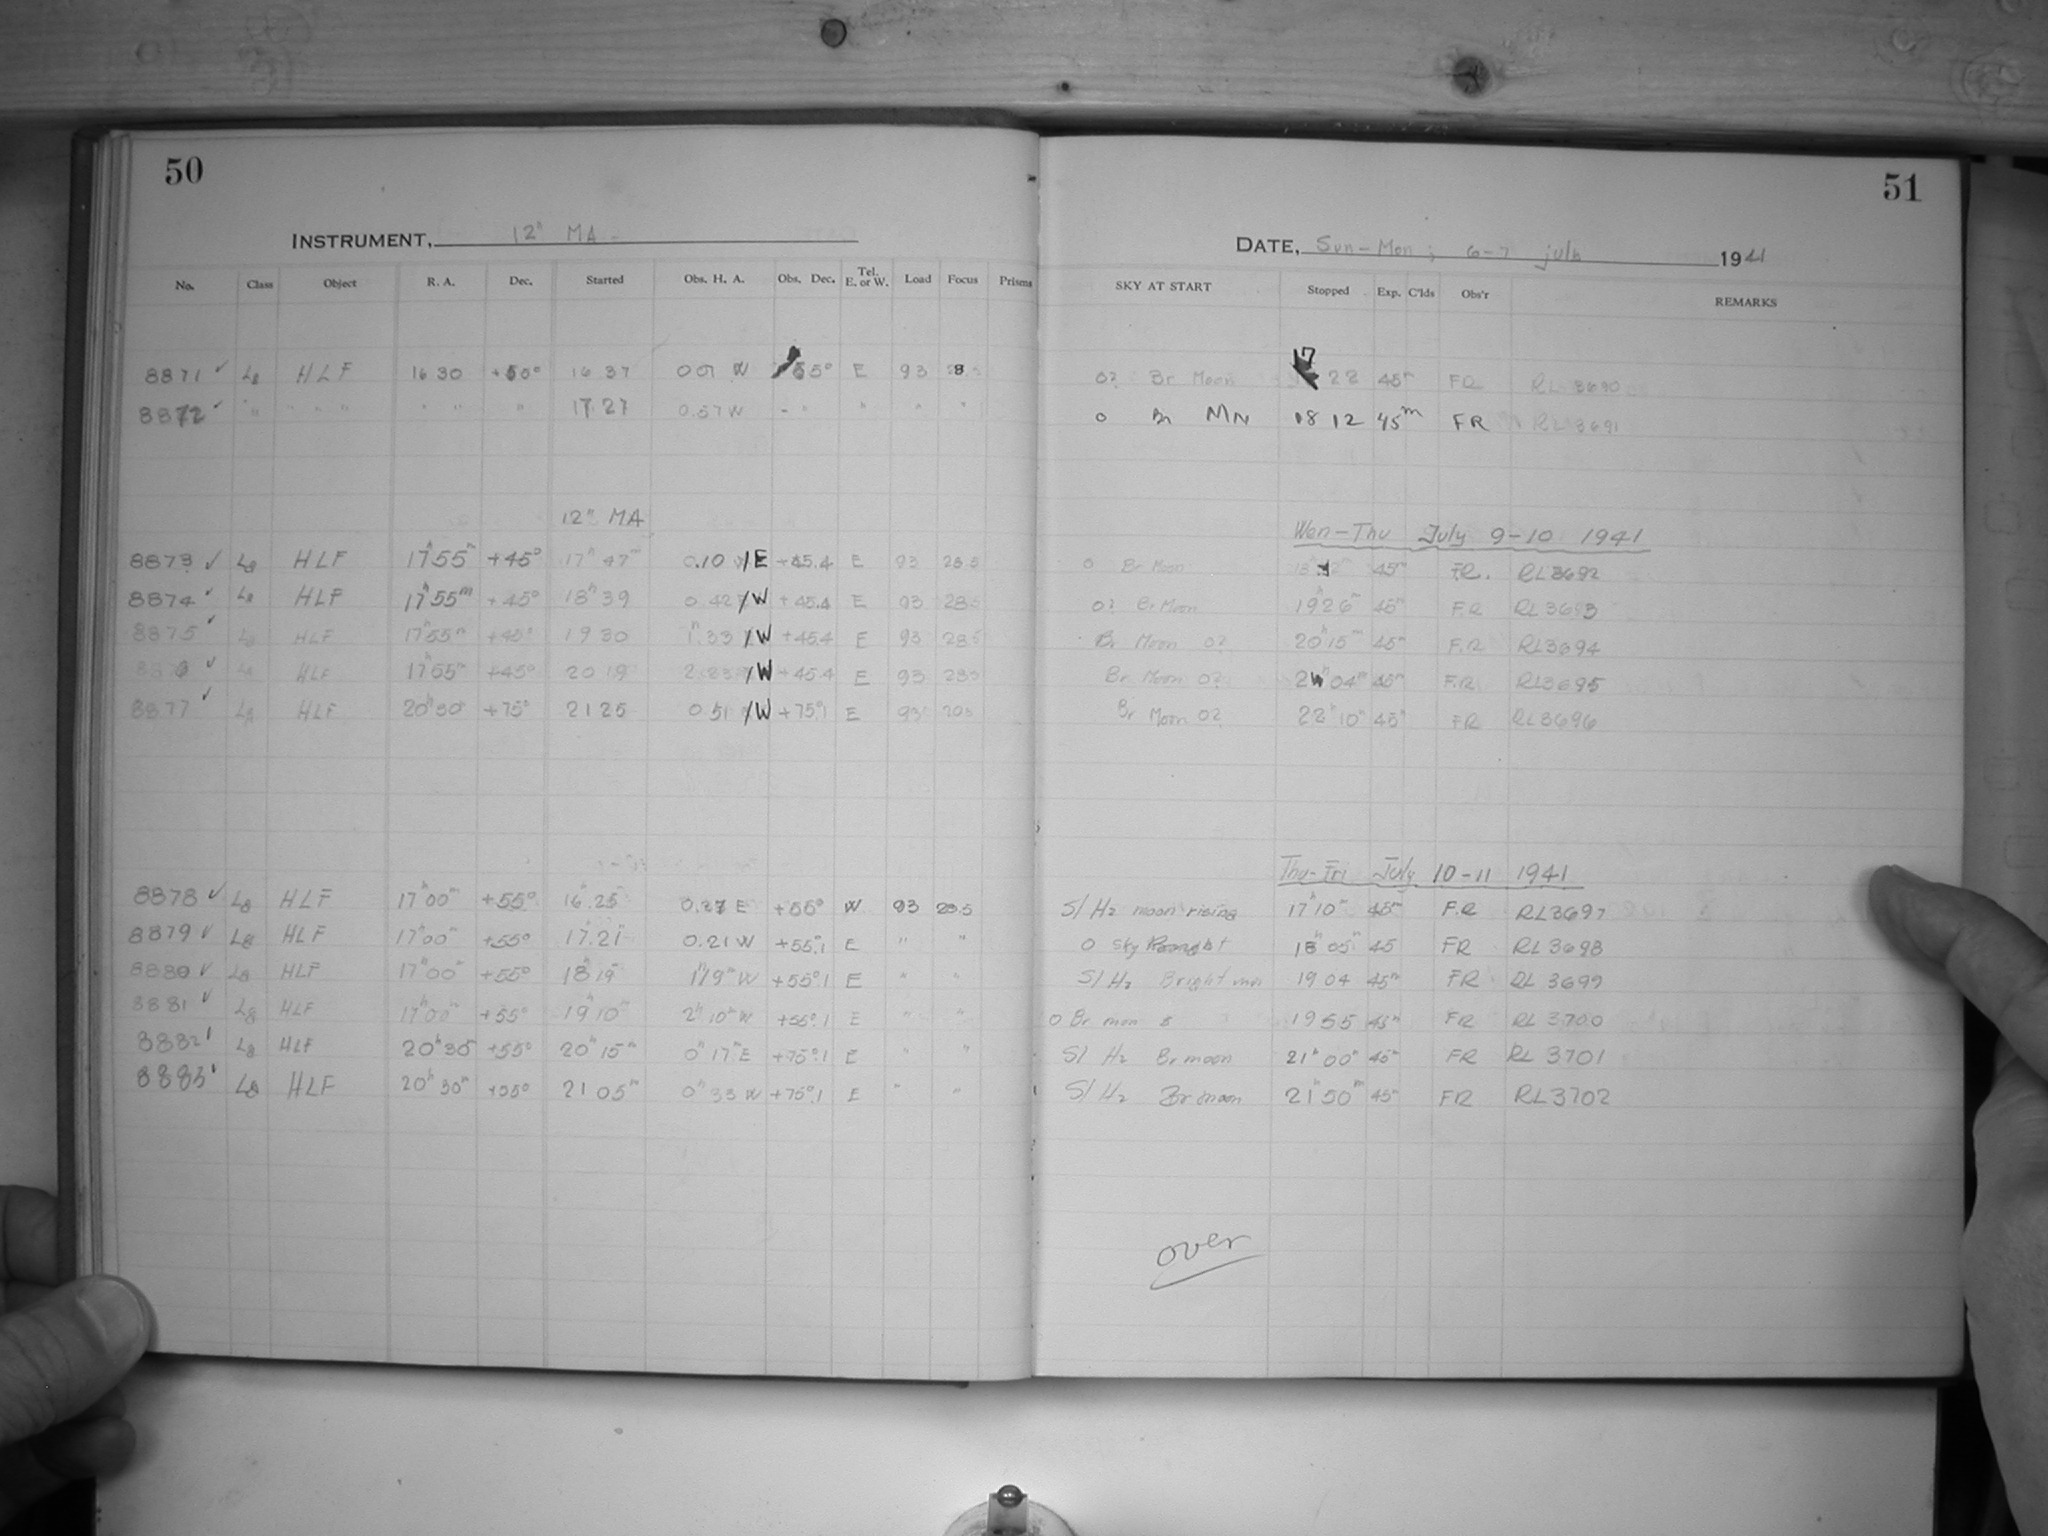 50
INSTRUMENT, 12" MA
No. Class Object R. A. Dec. Started Obs. H. A. Obs. Dec. Tel. E. or W. Load Focus Prisms
8871 ✓ L8 HLF 16 30 +55° 16 37 0 01 W 55° E 93
8872 ✓ " " " " " " " 17.27 0.57 W - " " " "
12" MA
8873 ✓ L8 HLF 17h55m +45° 17h 47m 0.10 /E +45.4 E 93 28.5
8874 ✓ L8 HLF 17h55m +45° 18h 39 0.42 /W +45.4 E 93 28.5
8875 ✓ L8 HLF 17h55m +45° 19 30 1h.33 /W +45.4 E 93 28.5
✓ L8 HLF 17h55m +45° 20 19 /W +45.4 E 93 28.5
8877 ✓ L8 HLF 20h30 +75° 21 25 0.51 /W +75°.1 E 93 28.5
8878 ✓ L8 HLF 17h00m +55° 16h.25 0.27 E +55° W 93 28.5
8879 ✓ L8 HLF 17h00m +55° 17.21 0.21 W +55°.1 E " "
8880 ✓ L8 HLF 17h00m +55° 18h 19 1h19m W +55°.1 E " "
8881 ✓ L8 HLF 17h00m +55° 19h10m 2h 10m W +55°.1 E " "
8882 L8 HLF 20h30 +55° 20h 15m 0h 17m E +75°.1 E " "
8883 L8 HLF 20h 30m +55° 21 05m 0h 33 W +75°.1 E " "
51
DATE, Sun-Mon; 6-7 july 1941
SKY AT START Stopped Exp. C'lds Obs'r REMARKS
0? Br Moon 17 22 45m FR RL 3690
0 Br MN 18 12 45m FR RL 3691
Wen-Thu July 9-10 1941
0 Br Moon 45m FR. RL3692
0? Br Moon 19h26m 45m F.R RL3693
Br Moon 0? 20h15m 45m F.R RL3694
Br Moon 0? 21h04m 45m F.R RL3695
Br Moon 0? 22h10m 45m FR RL3696
Thu-Fri July 10-11 1941
Sl Hz moon rising 17h10m 45m F.R RL3697
0 Sky 18h05m 45 FR RL3698
Sl Hz Bright 19 04 45m FR RL 3699
0 Br mon 19 55 45m FR RL 3700
Sl Hz Br moon 21h00m 45m FR RL 3701
Sl Hz Br moon 21h50m 45m FR RL3702
over